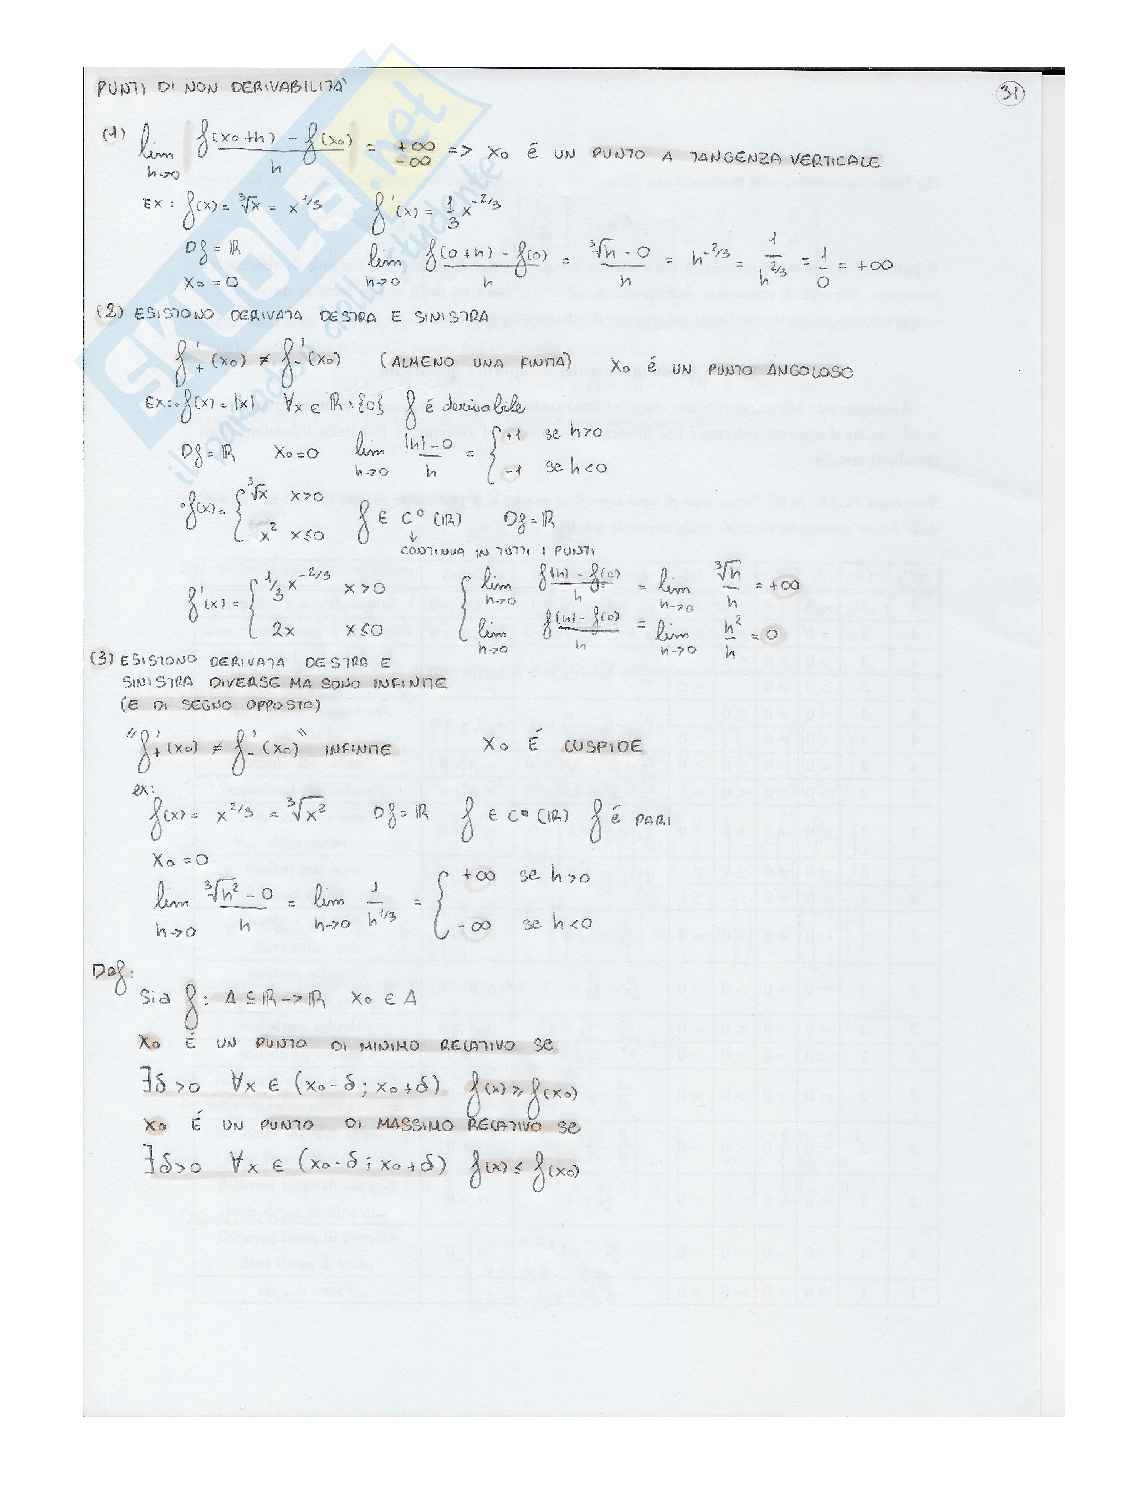 PUNTI DI NON DERIVABILITA'
31
(1) lim h→0 f(x₀+h) - f(x₀) / h = +∞ -∞ => x₀ É UN PUNTO A TANGENZA VERTICALE
EX: f(x) = ∛x = x^1/3    f'(x) = 1/3 x^-2/3
Df = ℝ    lim h→0 f(0+h) - f(0) / h = ∛h - 0 / h = h^-2/3 = 1 / h^2/3 = 1/0 = +∞
x₀ = 0
(2) ESISTONO DERIVATA DESTRA E SINISTRA
f'₊(x₀) ≠ f'₋(x₀)    (ALMENO UNA FINITA)    x₀ É UN PUNTO ANGOLOSO
EX: • f(x) = |x|    ∀x ∈ ℝ\{0}    f é derivabile
Df = ℝ    x₀ = 0    lim h→0 |h| - 0 / h = { +1 se h>0
-1 se h<0
• f(x) = { ∛x  x>0
x²  x≤0    f ∈ C⁰(ℝ)    Df = ℝ
↓
CONTINUA IN TUTTI I PUNTI
f'(x) = { 1/3 x^-2/3  x>0    { lim h→0 f(h) - f(0) / h = lim h→0 ∛h / h = +∞
2x  x≤0    lim h→0 f(h) - f(0) / h = lim h→0 h² / h = 0
(3) ESISTONO DERIVATA DESTRA E
SINISTRA DIVERSE MA SONO INFINITE
(E DI SEGNO OPPOSTO)
"f'₊(x₀) ≠ f'₋(x₀)" INFINITE    x₀ É CUSPIDE
ex:
f(x) = x^2/3 = ∛x²    Df = ℝ    f ∈ C⁰(ℝ)    f é PARI
x₀ = 0
lim h→0 ∛h² - 0 / h = lim h→0 1 / h^1/3 = { +∞ se h>0
-∞ se h<0
Def:
Sia f: A ⊆ ℝ → ℝ    x₀ ∈ A
x₀ É UN PUNTO DI MINIMO RELATIVO SE
∃δ>0  ∀x ∈ (x₀-δ; x₀+δ)  f(x) ≥ f(x₀)
x₀ É UN PUNTO DI MASSIMO RELATIVO SE
∃δ>0  ∀x ∈ (x₀-δ; x₀+δ)  f(x) ≤ f(x₀)
SKUOLA.net
il paradiso dello studente